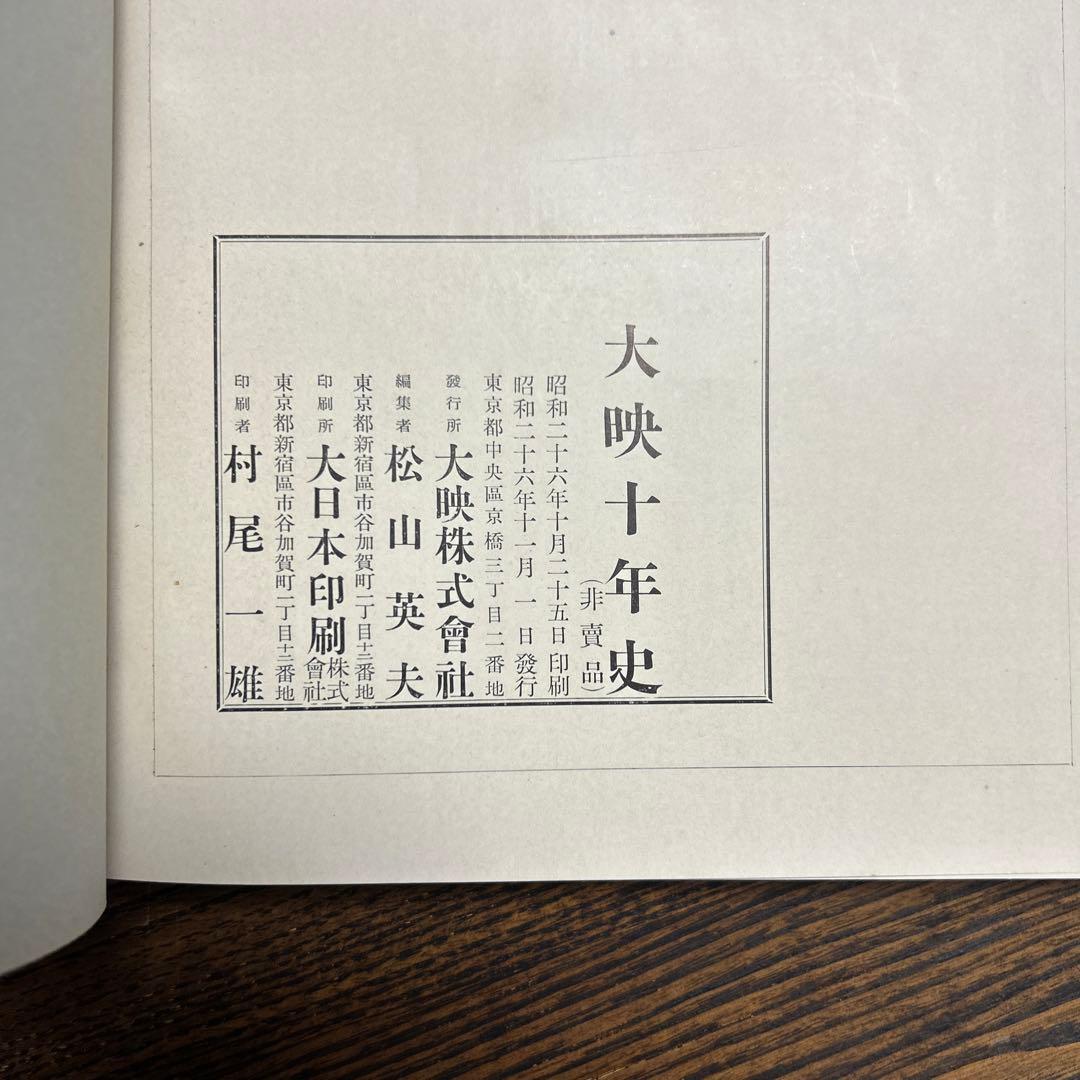 大映十年史
（非賣品）
昭和二十六年十月二十五日印刷
昭和二十六年十一月一日發行
東京都中央區京橋三丁目二番地
發行所 大映株式會社
編集者 松山英夫
東京都新宿區市谷加賀町一丁目十二番地
印刷所 大日本印刷株式會社
東京都新宿區市谷加賀町一丁目十二番地
印刷者 村尾一雄